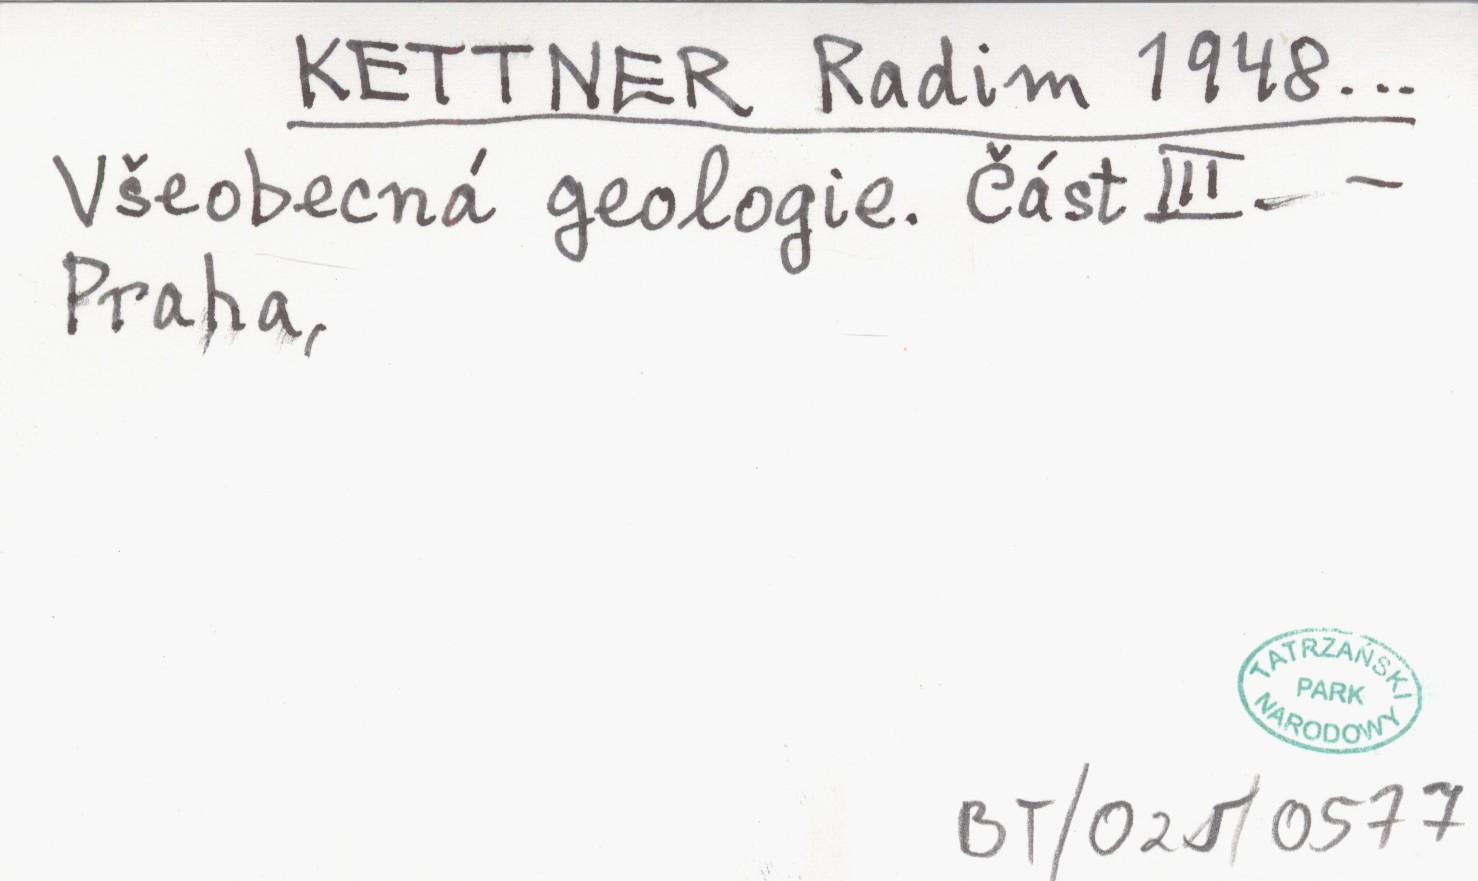 KETTNER Radim 1948...
Všeobecná geologie. Část III. -
Praha,
TATRZAŃSKI
PARK
NARODOWY
BT/025/0577